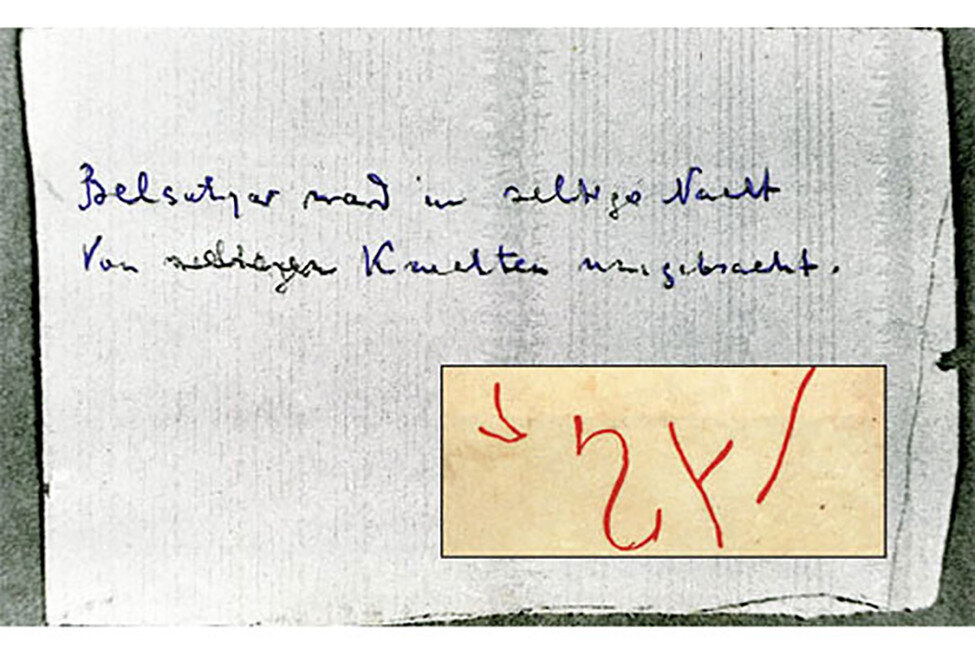 Belsatzar ward in selbiger Nacht
Von selbigen Knechten umgebracht.